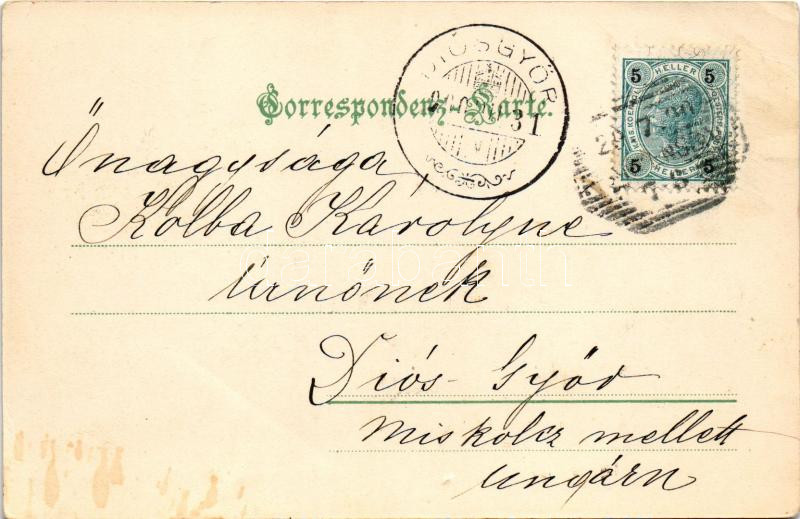 Correspondenz-Karte.
DIÓSGYŐR
5 HELLER 5
5 5
Önagysága
Kolba Károlyne
Úrnőnek
Diós-Győr
Miskolcz mellett
Ungárn